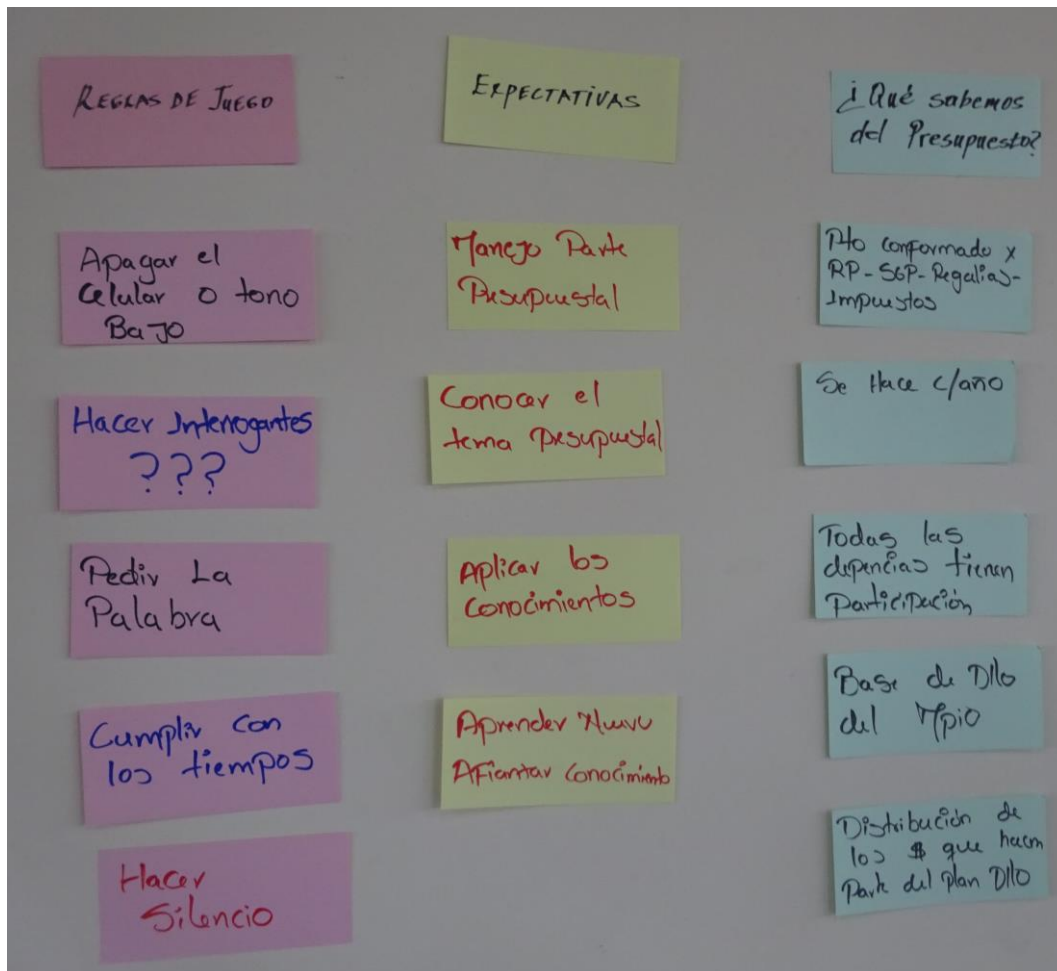 REGLAS DE JUEGO
Apagar el
Celular o tono
BaJo
Hacer Interrogantes
???
Pedir La
Palabra
Cumplir con
los tiempos
Hacer
Silencio
EXPECTATIVAS
Manejo Parte
Presupuestal
Conocer el
tema Presupuestal
Aplicar los
Conocimientos
Aprender Nuevo
Afiantar Conocimiento
¿Qué sabemos
del Presupuesto?
Pto conformado x
RP-SGP-Regalias-
Impuestos
Se Hace c/año
Todas las
depencias tienen
Participación
Base de Dllo
del Mpio
Distribución de
los $ que hacen
Parte del plan Dllo